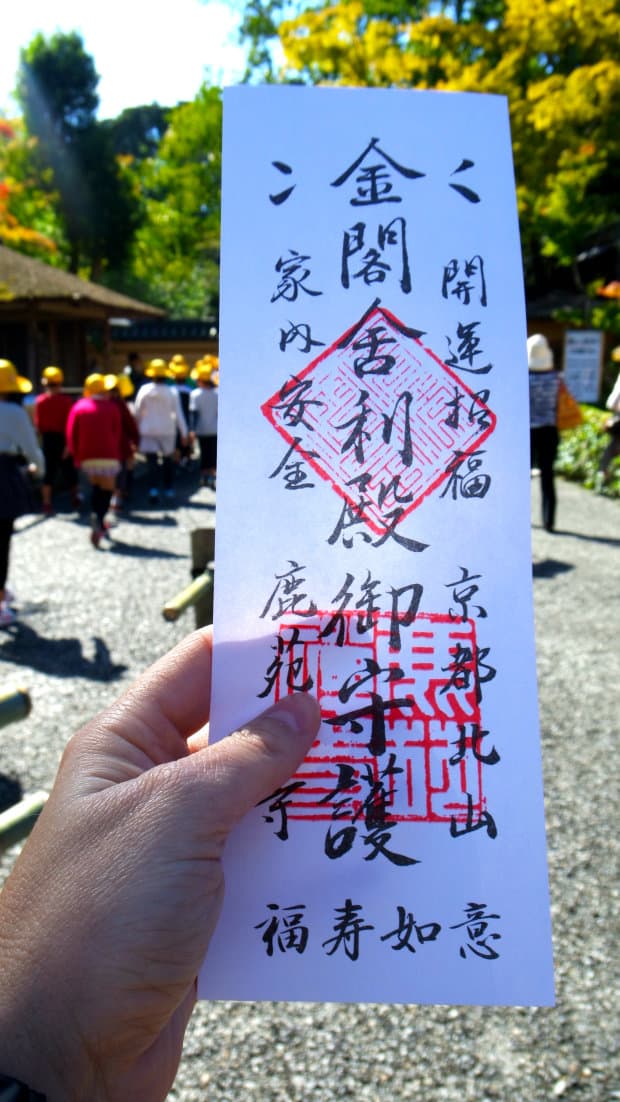 開運招福 京都北山
金閣舎利殿御守護
家内安全 鹿苑寺
福寿如意